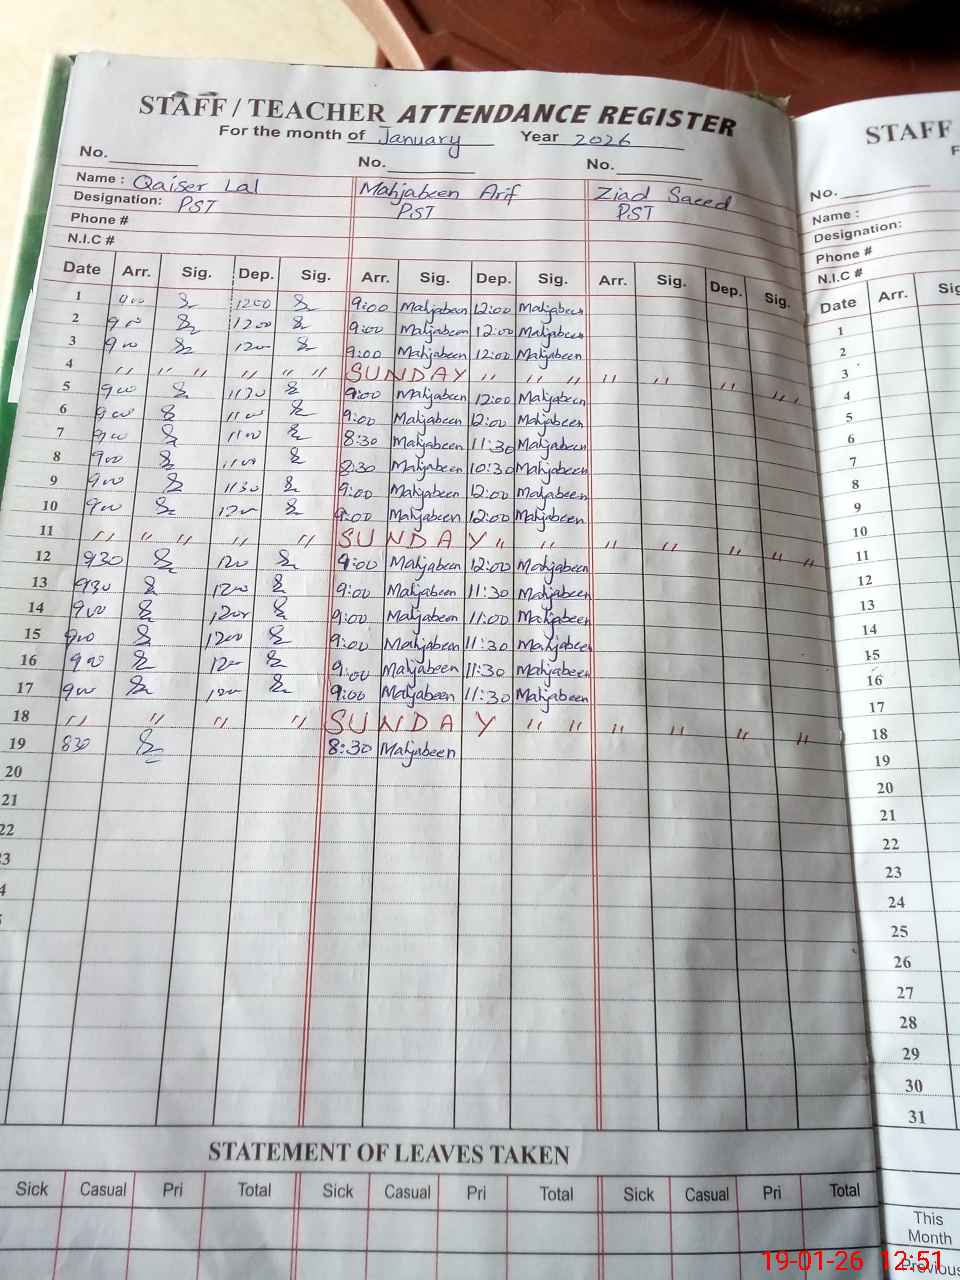 STAFF / TEACHER ATTENDANCE REGISTER
For the month of January Year 2026
No. No. No.
Name : Qaiser Lal Mahjabeen Arif Ziad Saeed
Designation: PST PST PST
Phone #
N.I.C #
Date Arr. Sig. Dep. Sig. Arr. Sig. Dep. Sig. Arr. Sig. Dep. Sig.
1 900 1200 9:00 Mahjabeen 12:00 Mahjabeen
2 900 1200 9:00 Mahjabeen 12:00 Mahjabeen
3 900 1200 9:00 Mahjabeen 12:00 Mahjabeen
4 " " " " " " SUNDAY " " " " " " "
5 900 1130 9:00 Mahjabeen 12:00 Mahjabeen
6 900 1100 9:00 Mahjabeen 12:00 Mahjabeen
7 900 1100 8:30 Mahjabeen 11:30 Mahjabeen
8 900 1100 8:30 Mahjabeen 10:30 Mahjabeen
9 900 1130 9:00 Mahjabeen 12:00 Mahjabeen
10 900 1200 9:00 Mahjabeen 12:00 Mahjabeen
11 " " " " " SUNDAY " " " " " " "
12 930 1200 9:00 Mahjabeen 12:00 Mahjabeen
13 930 1200 9:00 Mahjabeen 11:30 Mahjabeen
14 900 1200 9:00 Mahjabeen 11:00 Mahjabeen
15 900 1200 9:00 Mahjabeen 11:30 Mahjabeen
16 900 1200 9:00 Mahjabeen 11:30 Mahjabeen
17 900 1200 9:00 Mahjabeen 11:30 Mahjabeen
18 " " " " SUNDAY " " " " " "
19 830 8:30 Mahjabeen
20
21
22
STATEMENT OF LEAVES TAKEN
Sick Casual Pri Total Sick Casual Pri Total Sick Casual Pri Total
STAFF
No.
Name :
Designation:
Phone #
N.I.C #
Date Arr.
1
2
3
4
5
6
7
8
9
10
11
12
13
14
15
16
17
18
19
20
21
22
23
24
25
26
27
28
29
30
31
This
Month
Previous
19-01-26 12:51